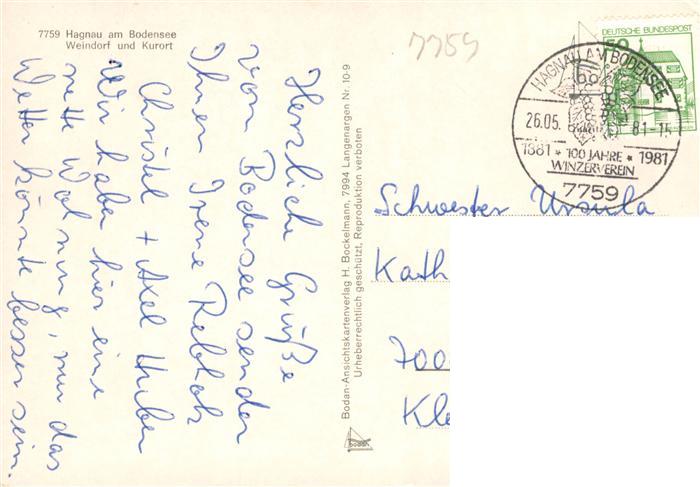 7759 Hagnau am Bodensee
Weindorf und Kurort
Herzliche Grüße
von Bodensee senden
Ihnen Irene Rebholz
Christel + Axel Huber
Wir haben hier eine
nette Wohnung, nur das
Wetter könnte besser sein.
Bodan-Ansichtskartenverlag H. Bockelmann, 7994 Langenargen Nr. 10-9
Urheberrechtlich geschützt, Reproduktion verboten
bodan
7759
DEUTSCHE BUNDESPOST
50
HAGNAU AM BODENSEE
26.05. 81-15
1881 * 100 JAHRE * 1981
WINZERVEREIN
7759
Schwester Ursula
Kath
700
Kle